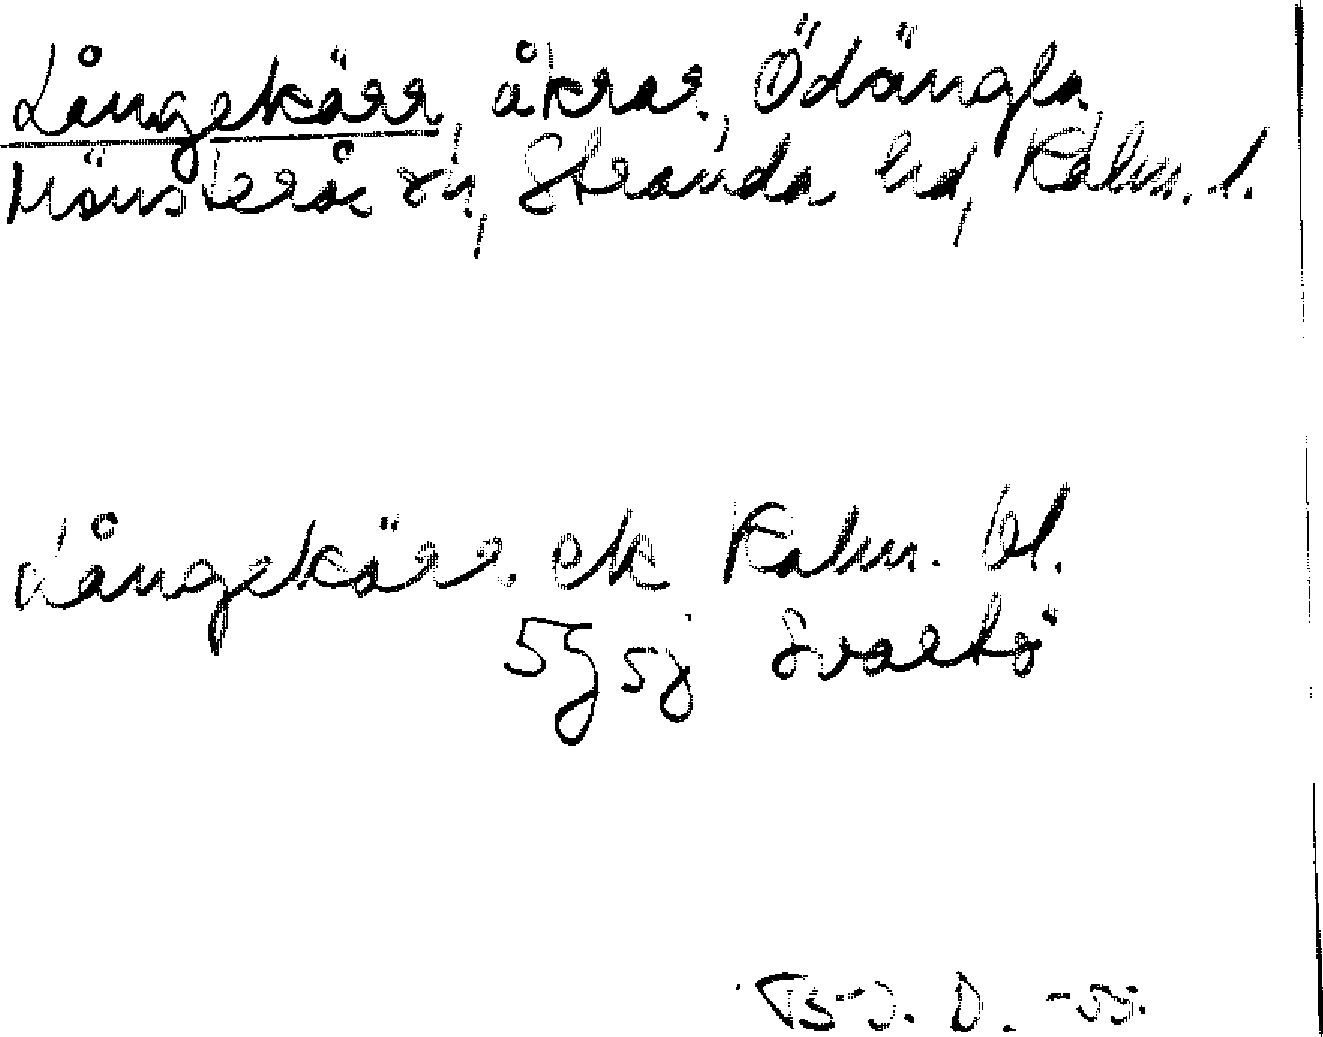 Långekärr, åkrar, Ödängla,
Mönsterås sn, Stranda hd, Kalm. l.
Långekärr. ek Kalm. bl.
5g 5j Svartö
B-J. D. -55.